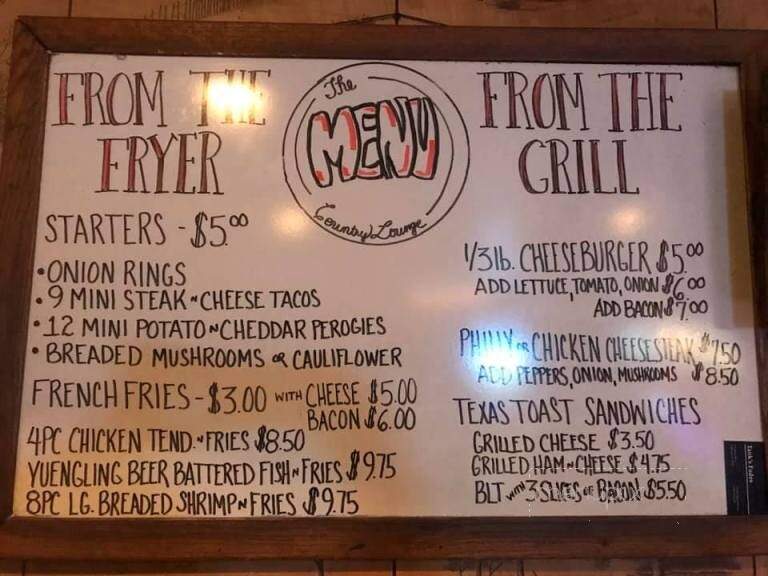 The
MENU
Country Lounge
FROM THE
FRYER
STARTERS - $5.00
• ONION RINGS
• 9 MINI STEAK ~ CHEESE TACOS
• 12 MINI POTATO ~ CHEDDAR PEROGIES
• BREADED MUSHROOMS OR CAULIFLOWER
FRENCH FRIES - $3.00 WITH CHEESE $5.00
BACON $6.00
4PC CHICKEN TEND. ~ FRIES $8.50
YUENGLING BEER BATTERED FISH ~ FRIES $9.75
8PC LG. BREADED SHRIMP ~ FRIES $9.75
FROM THE
GRILL
1/3 lb. CHEESEBURGER $5.00
ADD LETTUCE, TOMATO, ONION $6.00
ADD BACON $7.00
PHILLY OR CHICKEN CHEESESTEAK $7.50
ADD PEPPERS, ONION, MUSHROOMS $8.50
TEXAS TOAST SANDWICHES
GRILLED CHEESE $3.50
GRILLED HAM ~ CHEESE $4.75
BLT WITH 3 SLICES OF BACON $5.50